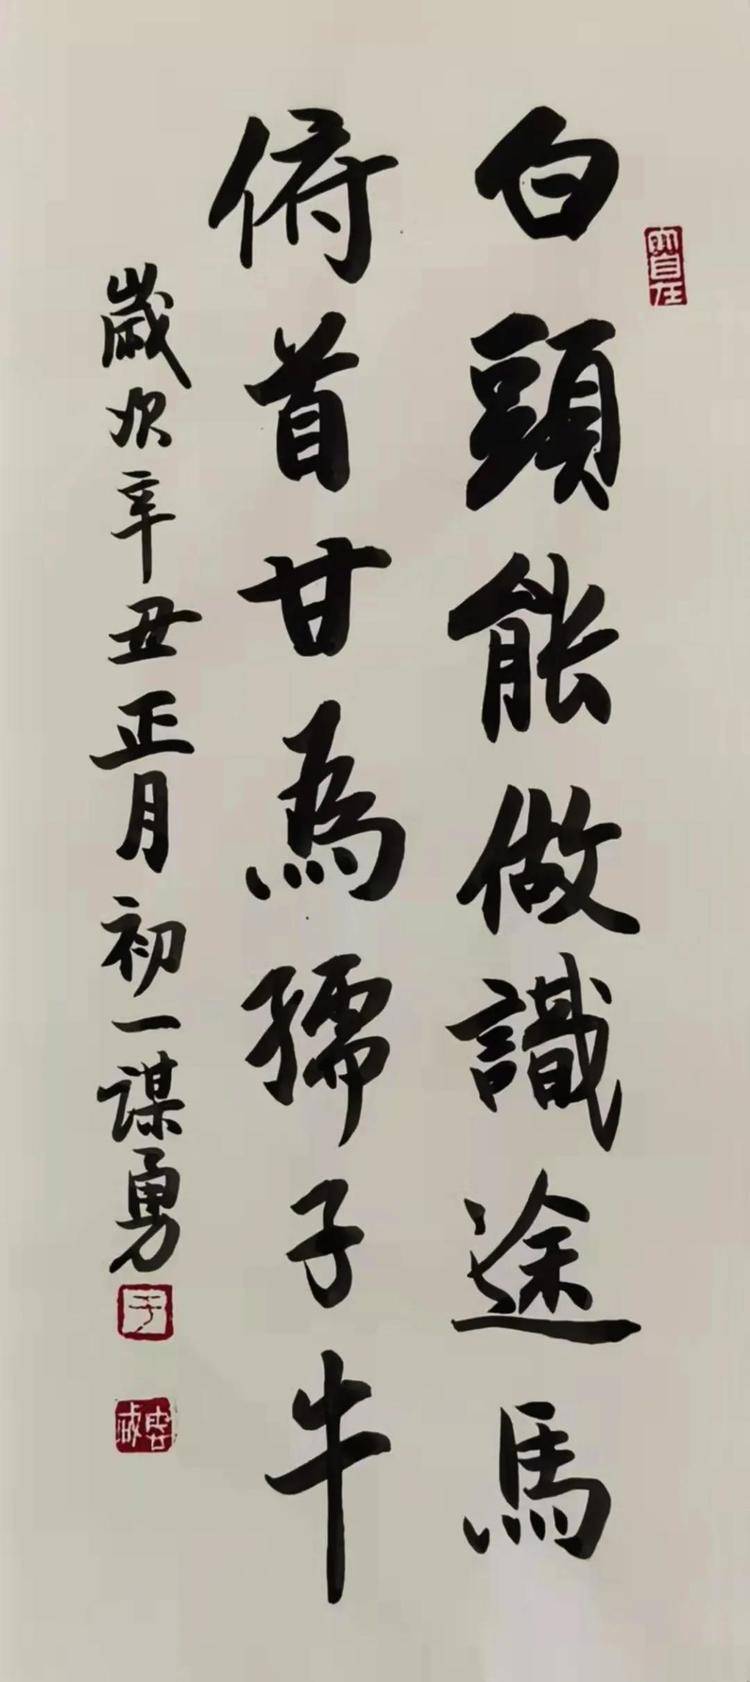 白頭能做識途馬
俯首甘為孺子牛
歲次辛丑正月初一謀勇